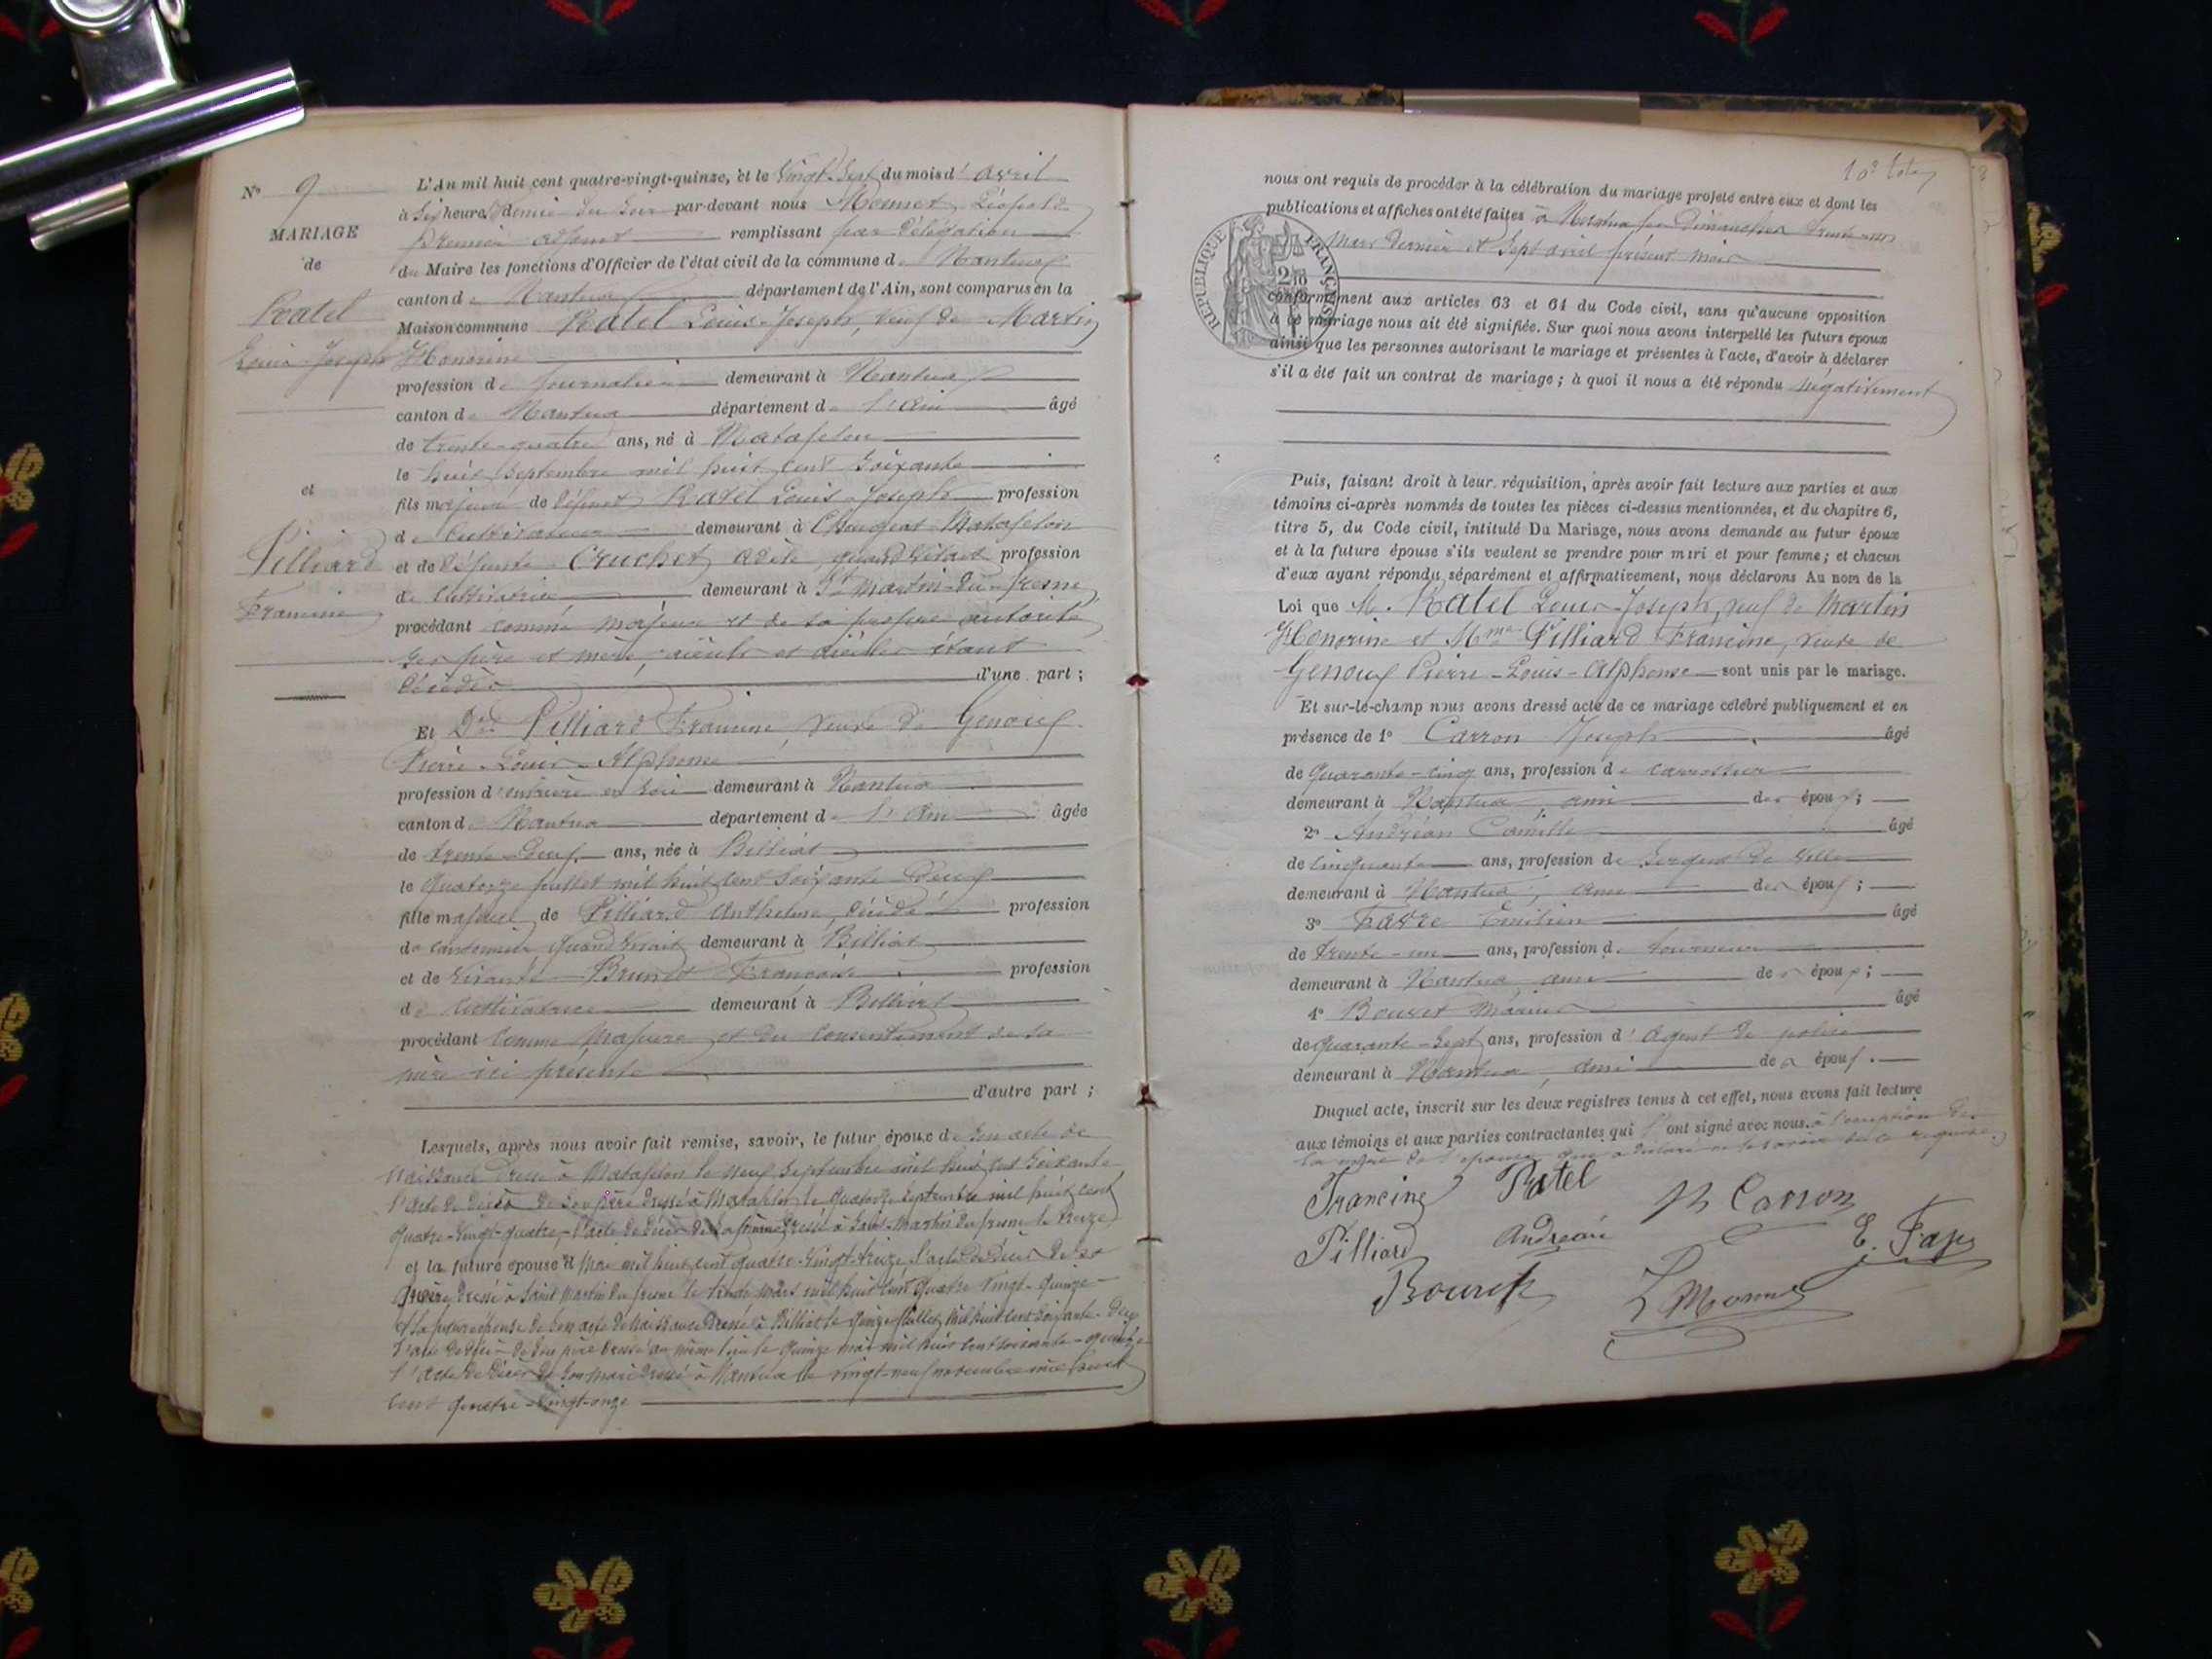 N° 9
MARIAGE
de
Ratel
Louis-Joseph
et
Pilliard
Francine
L'An mil huit cent quatre-vingt-quinze, et le vingt-sept du mois d'avril
à six heures & demie du soir par-devant nous Monnet Léopold
premier adjoint remplissant par délégation
du Maire les fonctions d'Officier de l'état civil de la commune de Nantua
canton de Nantua département de l'Ain, sont comparus en la
Maison commune Ratel Louis-Joseph, veuf de Martin
Honorine
profession de journalier demeurant à Nantua
canton de Nantua département de l'Ain âgé
de trente-quatre ans, né à Matafelon
le huit septembre mil huit cent soixante
fils majeur de défunt Ratel Louis-Joseph profession
de cultivateur demeurant à Chougeat-Matafelon
et de défunte Cruchet Adèle, quand vivait profession
de cultivatrice demeurant à St Martin-du-fresne
procédant comme majeur et de sa propre autorité
ses père et mère, aïeuls et aïeules étant
décédés d'une part ;
Et De Pilliard Francine, veuve de Genoux
Pierre-Louis-Alphonse
profession d'ouvrière en soie demeurant à Nantua
canton de Nantua département de l'Ain âgée
de trente-deux ans, née à Billiat
le quatorze juillet mil huit cent soixante deux
fille majeure de Pilliard Anthelme, décédé profession
de cantonnier, quand vivait demeurant à Billiat
et de vivante Brunet Françoise profession
de cultivatrice demeurant à Billiat
procédant comme majeure et du consentement de sa
mère ici présente
d'autre part ;
Lesquels, après nous avoir fait remise, savoir, le futur époux de son acte de
naissance dressé à Matafelon le neuf septembre mil huit cent soixante
l'acte de décès de son père dressé à Matafelon le quatorze septembre mil huit cent
quatre-vingt-quatre, l'acte de décès de sa mère dressé à Saint-Martin du fresne le treize
et la future épouse mai mil huit cent quatre-vingt-treize, l'acte de décès de sa
dressé à Saint Martin du fresne le trente mars mil huit cent quatre vingt-quinze
et la future épouse de son acte de naissance dressé à Billiat le quinze juillet mil huit cent soixante-deux
l'acte de décès de son père dressé au même lieu le quinze mai mil huit cent soixante-quinze
l'acte de décès de son mari dressé à Nantua le vingt-neuf novembre mil huit
cent quatre-vingt-onze
nous ont requis de procéder à la célébration du mariage projeté entre eux et dont les
publications et affiches ont été faites à Nantua les dimanches trente-un
mars dernier et sept avril présent mois
REPUBLIQUE FRANÇAISE
conformément aux articles 63 et 64 du Code civil, sans qu'aucune opposition
à ce mariage nous ait été signifiée. Sur quoi nous avons interpellé les futurs époux
ainsi que les personnes autorisant le mariage et présentes à l'acte, d'avoir à déclarer
s'il a été fait un contrat de mariage ; à quoi il nous a été répondu négativement
Puis, faisant droit à leur réquisition, après avoir fait lecture aux parties et aux
témoins ci-après nommés de toutes les pièces ci-dessus mentionnées, et du chapitre 6,
titre 5, du Code civil, intitulé Du Mariage, nous avons demandé au futur époux
et à la future épouse s'ils veulent se prendre pour mari et pour femme ; et chacun
d'eux ayant répondu séparément et affirmativement, nous déclarons Au nom de la
Loi que M. Ratel Louis-Joseph, veuf de Martin
Honorine et Mme Pilliard Francine, veuve de
Genoux Pierre-Louis-Alphonse sont unis par le mariage.
Et sur-le-champ nous avons dressé acte de ce mariage célébré publiquement et en
présence de 1° Carron Joseph âgé
de quarante-cinq ans, profession de carrossier
demeurant à Nantua, ami des époux ;
2° Andréan Camille âgé
de cinquante ans, profession de sergent de ville
demeurant à Nantua, ami des époux ;
3° Favre Emilien âgé
de trente-un ans, profession de tourneur
demeurant à Nantua, ami des époux ;
4° Bouret Marius âgé
de quarante-sept ans, profession d'agent de police
demeurant à Nantua, ami des époux.
Duquel acte, inscrit sur les deux registres tenus à cet effet, nous avons fait lecture
aux témoins et aux parties contractantes qui l'ont signé avec nous à l'exception de
la mère de l'épouse qui a déclaré ne le savoir de ce requise.
Francine Ratel Carron
Pilliard Andréan E. Favre
Bouret L Monnet